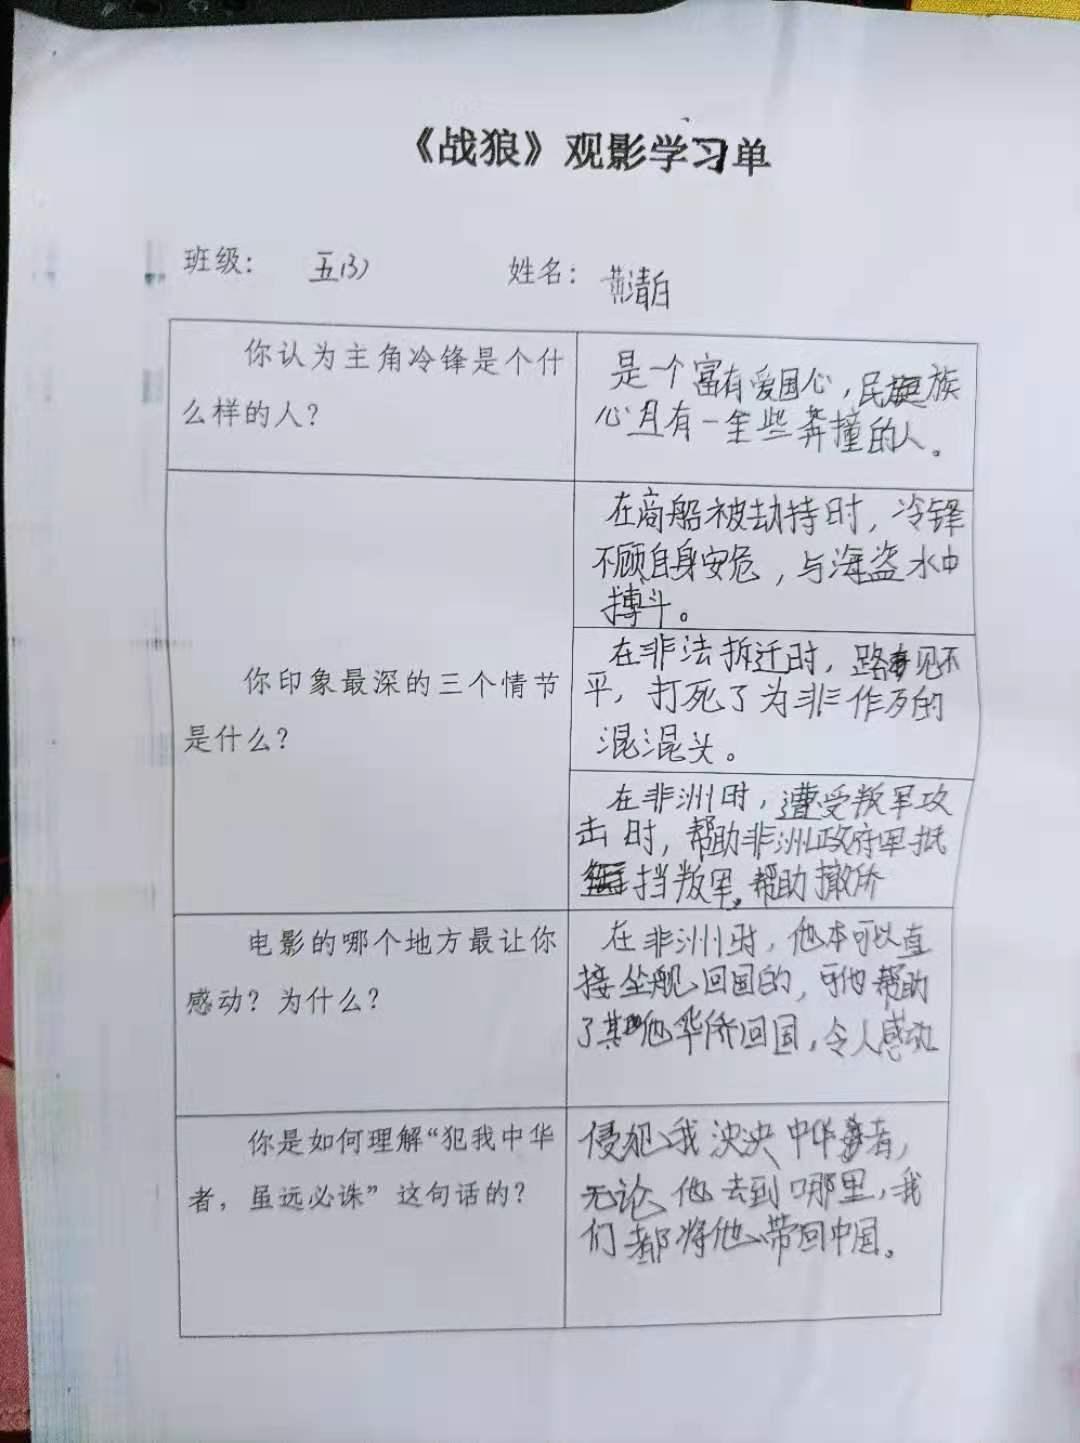 《战狼》观影学习单
班级： 五(3) 姓名： 黄清白
你认为主角冷锋是个什
么样的人？
是一个富有爱国心，民族
心且有一些莽撞的人。
你印象最深的三个情节
是什么？
在商船被劫持时，冷锋
不顾自身安危，与海盗水中
搏斗。
在非法拆迁时，路见不
平，打死了为非作歹的
混混头。
在非洲时，遭受叛军攻
击时，帮助非洲政府军抵
挡叛军。帮助撤侨
电影的哪个地方最让你
感动？为什么？
在非洲时，他本可以直
接坐舰回国的，可他帮助
了其他华侨回国，令人感动
你是如何理解“犯我中华
者，虽远必诛”这句话的？
侵犯我泱泱中华者，
无论他去到哪里，我
们都将他带回中国。